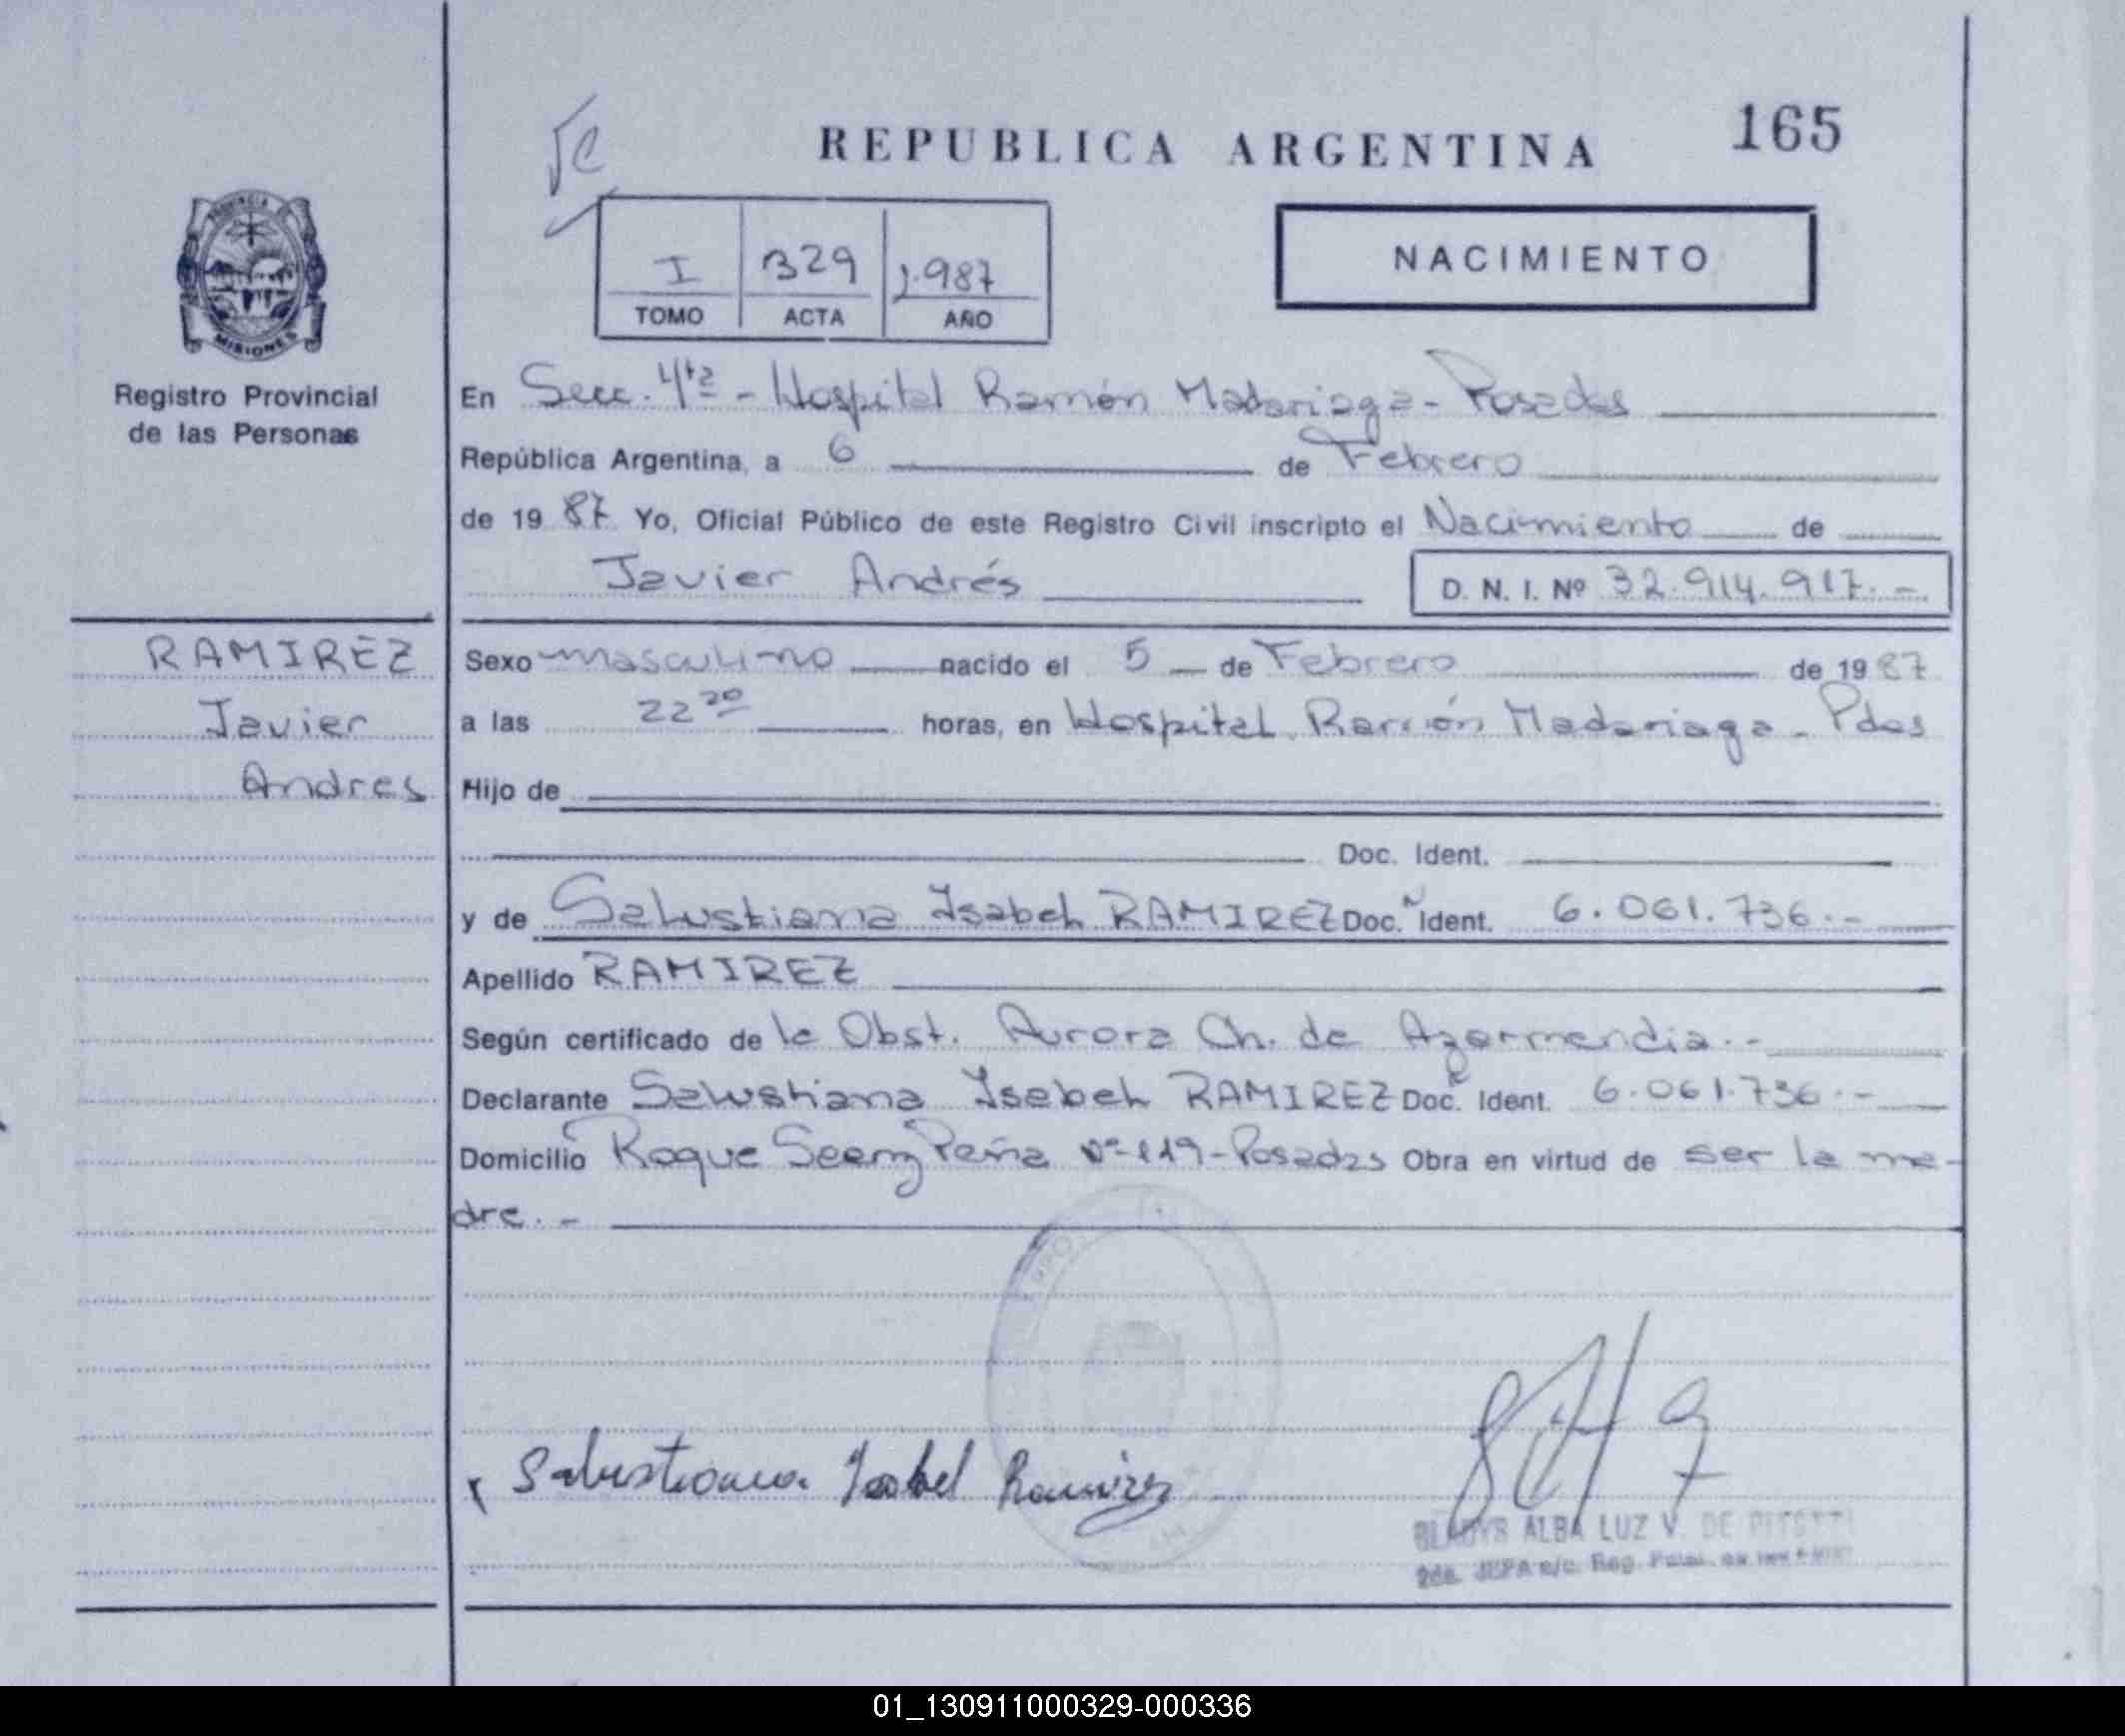 165
REPUBLICA ARGENTINA
NACIMIENTO
I 329 1.987
TOMO ACTA AÑO
PROVINCIA
MISIONES
Registro Provincial
de las Personas
En Secc. 4ta - Hospital Ramón Madariaga - Posadas
República Argentina, a 6 de Febrero
de 19 87 Yo, Oficial Público de este Registro Civil inscripto el Nacimiento de
Javier Andrés D. N. I. Nº 32.914.917.-
RAMIREZ
Javier
Andres
Sexo masculino nacido el 5 de Febrero de 19 87
a las 22 20 horas, en Hospital Ramón Madariaga - Pdas
Hijo de
Doc. Ident.
y de Salustiana Isabel RAMIREZ Doc. Ident. 6.061.736.-
Apellido RAMIREZ
Según certificado de la Obst. Aurora Ch. de Azarmendia.-
Declarante Salustiana Isabel RAMIREZ Doc. Ident. 6.061.736.-
Domicilio Roque Saenz Peña Nº 119 - Posadas Obra en virtud de ser la ma-
dre.-
Salustiana Isabel Ramirez
GLADYS ALBA LUZ V. DE
01_130911000329-000336